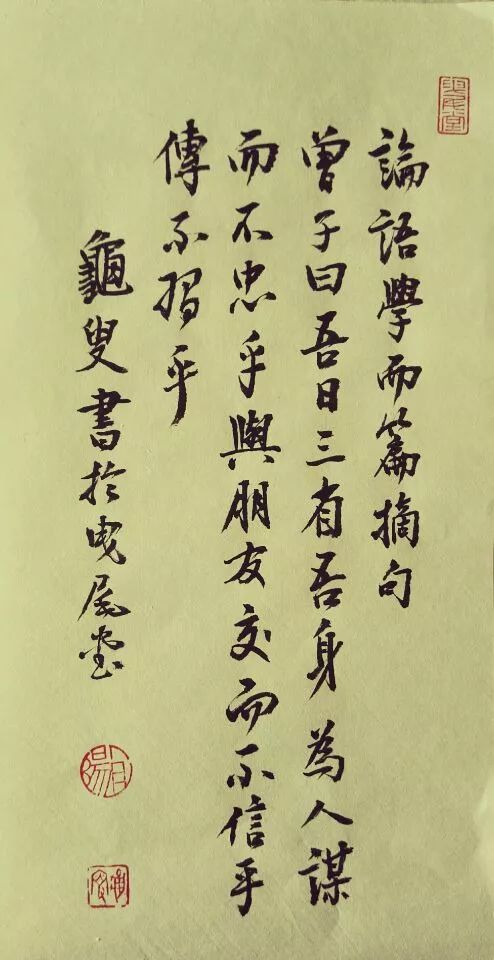 論語學而篇摘句
曾子曰吾日三省吾身為人謀
而不忠乎與朋友交而不信乎
傳不習乎
龜叟書於曳尾堂